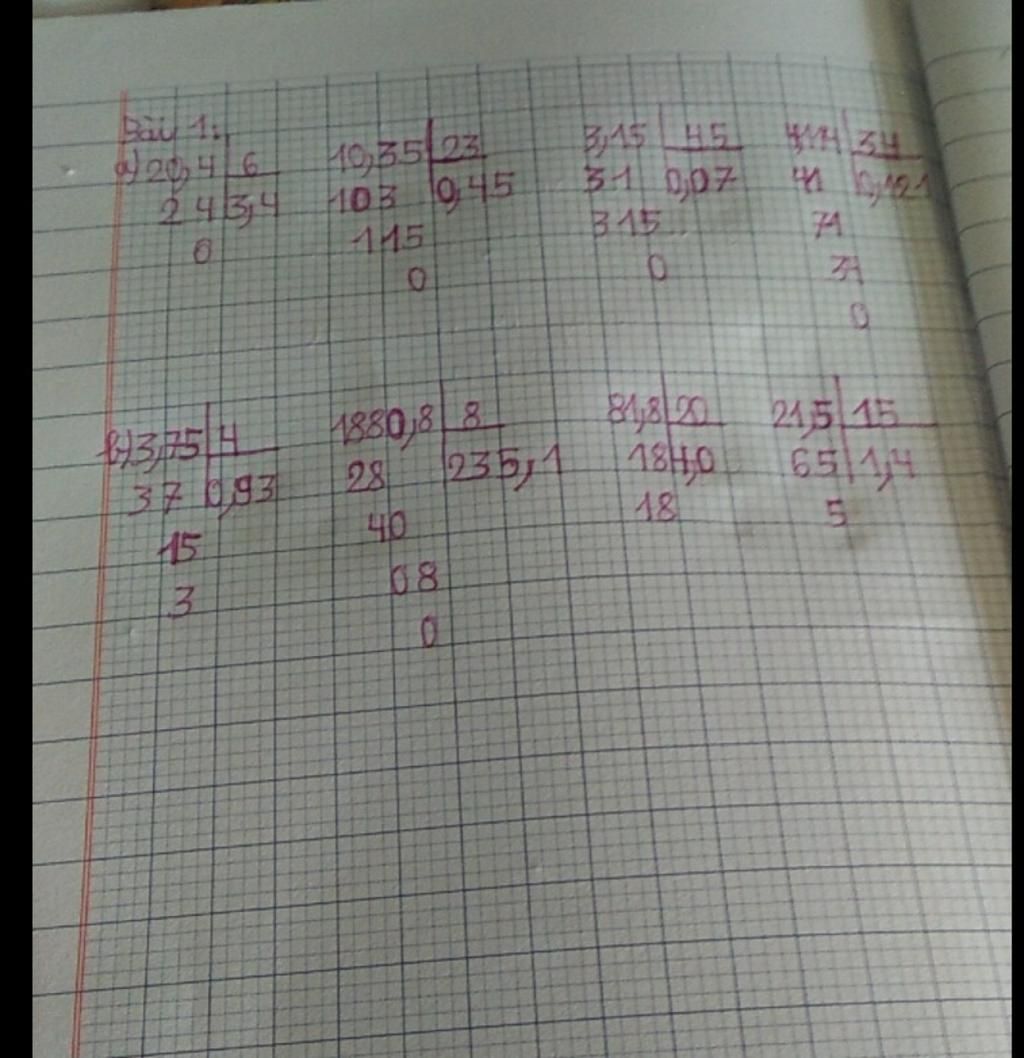 Bài 1:
a) 20,4 6 10,35 23 3,15 45 4,114 34
24 3,4 103 0,45 31 0,07 41 0,121
0 115 315 71
0 0 34
0
b) 3,75 4 1880,8 8 81,8 20 21,5 15
37 0,93 28 235,1 18 4,0 65 1,4
15 40 18 5
3 08
0